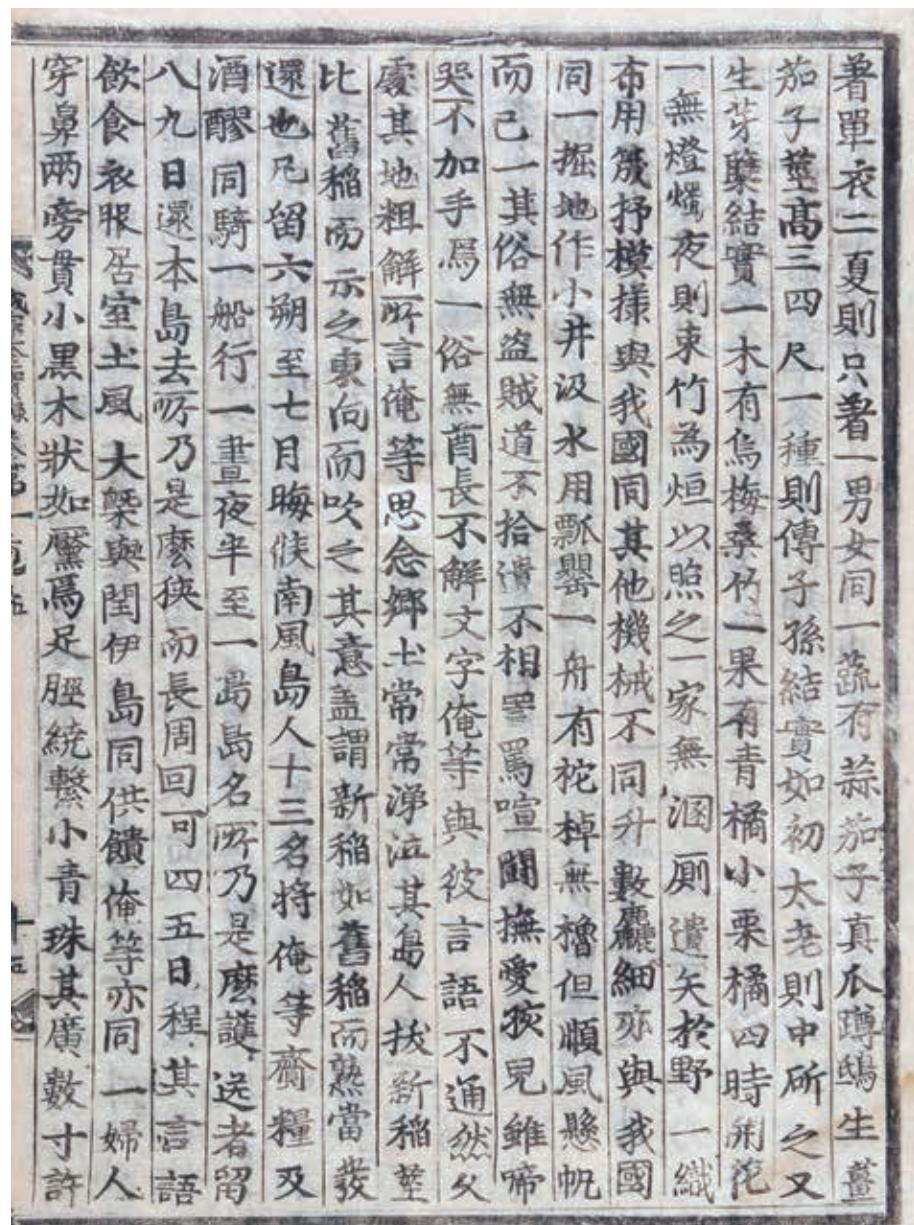 著單衣二夏則只著一男女同一蔬有蒜茄子真瓜蹲鴟生薑
茄子莖高三四尺一種則傳子孫結實如初太老則中斫之又
生芽蘖結實一木有烏梅桑竹一果有青橘小栗橘四時開花
一無燈燭夜則束竹為炬以照之一家無溷厠遺矢於野一織
布用筬抒模樣與我國同其他機械不同升數麤細亦與我國
同一掘地作小井汲水用瓢罌一舟有柁棹無櫓但順風懸帆
而已一其俗無盜賊道不拾遺不相詈罵喧鬪撫愛孩兒雖啼
哭不加手焉一俗無酋長不解文字俺等與彼言語不通然久
處其地粗解所言俺等思念鄉土常常涕泣其島人拔新稻莖
比舊稻而示之東向而吹之其意盖謂新稻如舊稻而熟當發
還也凡留六朔至七月晦候南風島人十三名將俺等齎糧及
酒醪同騎一船行一晝夜半至一島島名所乃是麽護送者留
八九日還本島去所乃是麽狹而長周回可四五日程其言語
飲食衣服居室土風大槩與閏伊島同供饋俺等亦同一婦人
穿鼻兩旁貫小黑木狀如黶焉足脛繞繫小青珠其廣數寸許